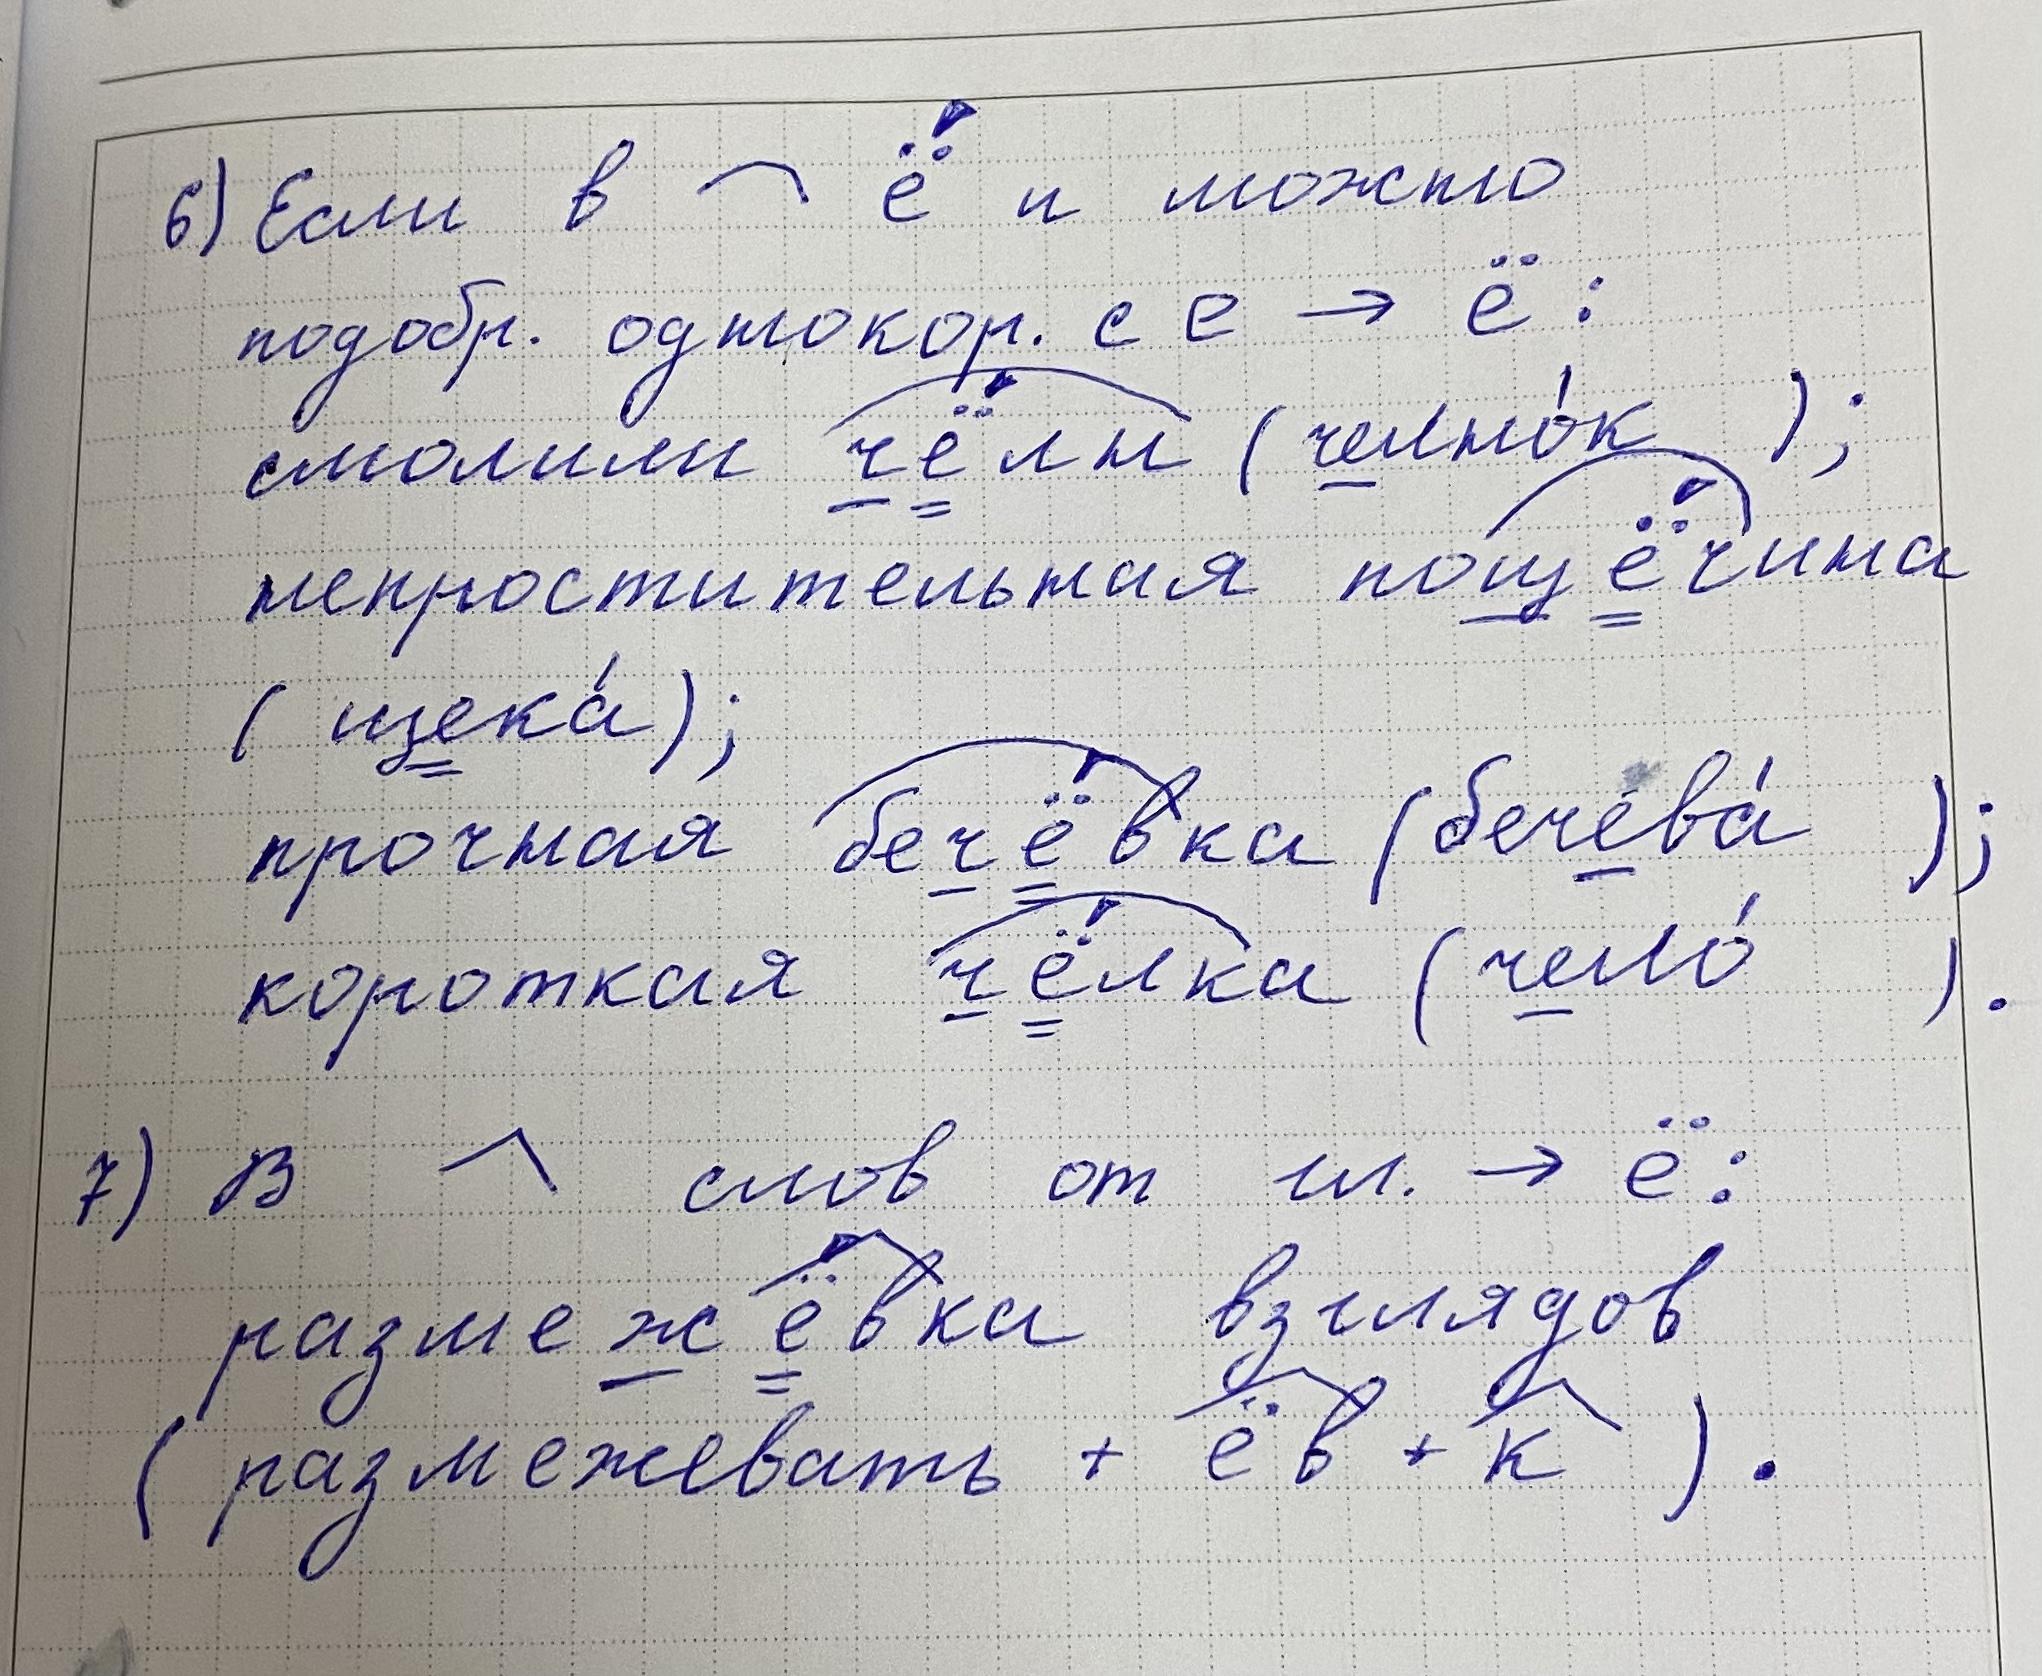 6) Если в ⌒ ё́ и можно
подобр. однокор. с е → ё:
смолили чёлн (челно́к );
непростительная пощёчина
( щека́);
прочная бечёвка (бечева́ );
короткая чёлка ( чело́ ).
7) В ^ слов от гл. → ё:
размежёвка взглядов
( размежевать + ёв + к ).